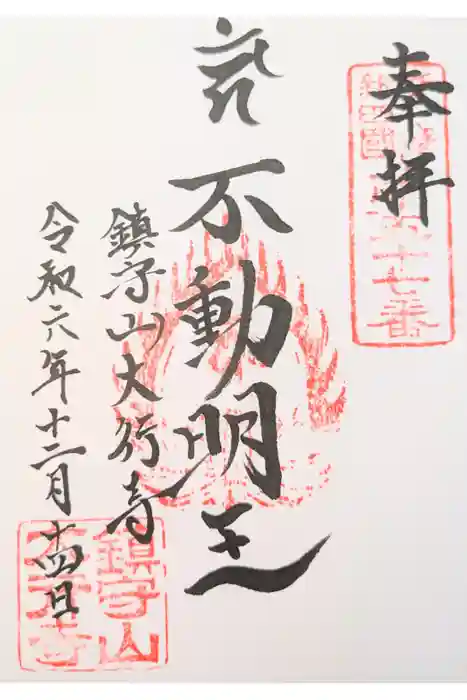 奉拝
五十七番
不動明王
鎮守山大行寺
令和六年十二月十四日
鎮守山
大行寺